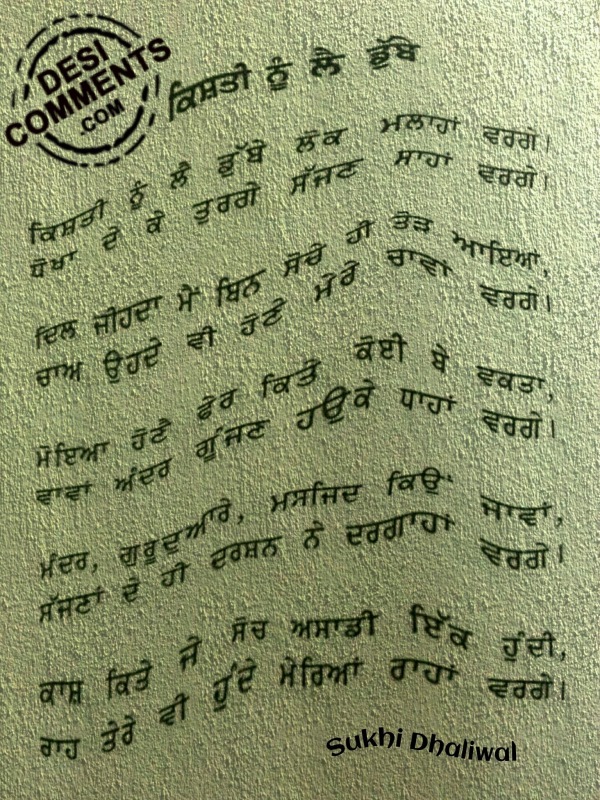 DESI
COMMENTS
.COM
ਕਿਸ਼ਤੀ ਨੂੰ ਲੈ ਡੁੱਬੇ
ਕਿਸ਼ਤੀ ਨੂੰ ਲੈ ਡੁੱਬੇ ਲੋਕ ਮਲਾਹਾਂ ਵਰਗੇ।
ਧੋਖਾ ਦੇ ਕੇ ਤੁਰਗੇ ਸੱਜਣ ਸਾਹਾਂ ਵਰਗੇ।
ਦਿਲ ਜੀਹਦਾ ਮੈਂ ਬਿਨ ਸੋਚੇ ਹੀ ਤੋੜ ਆਇਆਂ,
ਚਾਅ ਉਹਦੇ ਵੀ ਹੋਣੇ ਮੇਰੇ ਚਾਵਾਂ ਵਰਗੇ।
ਮੋਇਆ ਹੋਣੈ ਫੇਰ ਕਿਤੇ ਕੋਈ ਬੇ ਵਕਤਾ,
ਵਾਵਾਂ ਅੰਦਰ ਗੂੰਜਣ ਹਉਕੇ ਧਾਹਾਂ ਵਰਗੇ।
ਮੰਦਰ, ਗੁਰੂਦੁਆਰੇ, ਮਸਜਿਦ ਕਿਉਂ ਜਾਵਾਂ,
ਸੱਜਣਾਂ ਦੇ ਹੀ ਦਰਸ਼ਨ ਨੇ ਦਰਗਾਹਾਂ ਵਰਗੇ।
ਕਾਸ਼ ਕਿਤੇ ਜੇ ਸੋਚ ਅਸਾਡੀ ਇੱਕ ਹੁੰਦੀ,
ਰਾਹ ਤੇਰੇ ਵੀ ਹੁੰਦੇ ਮੇਰਿਆਂ ਰਾਹਾਂ ਵਰਗੇ।
Sukhi Dhaliwal